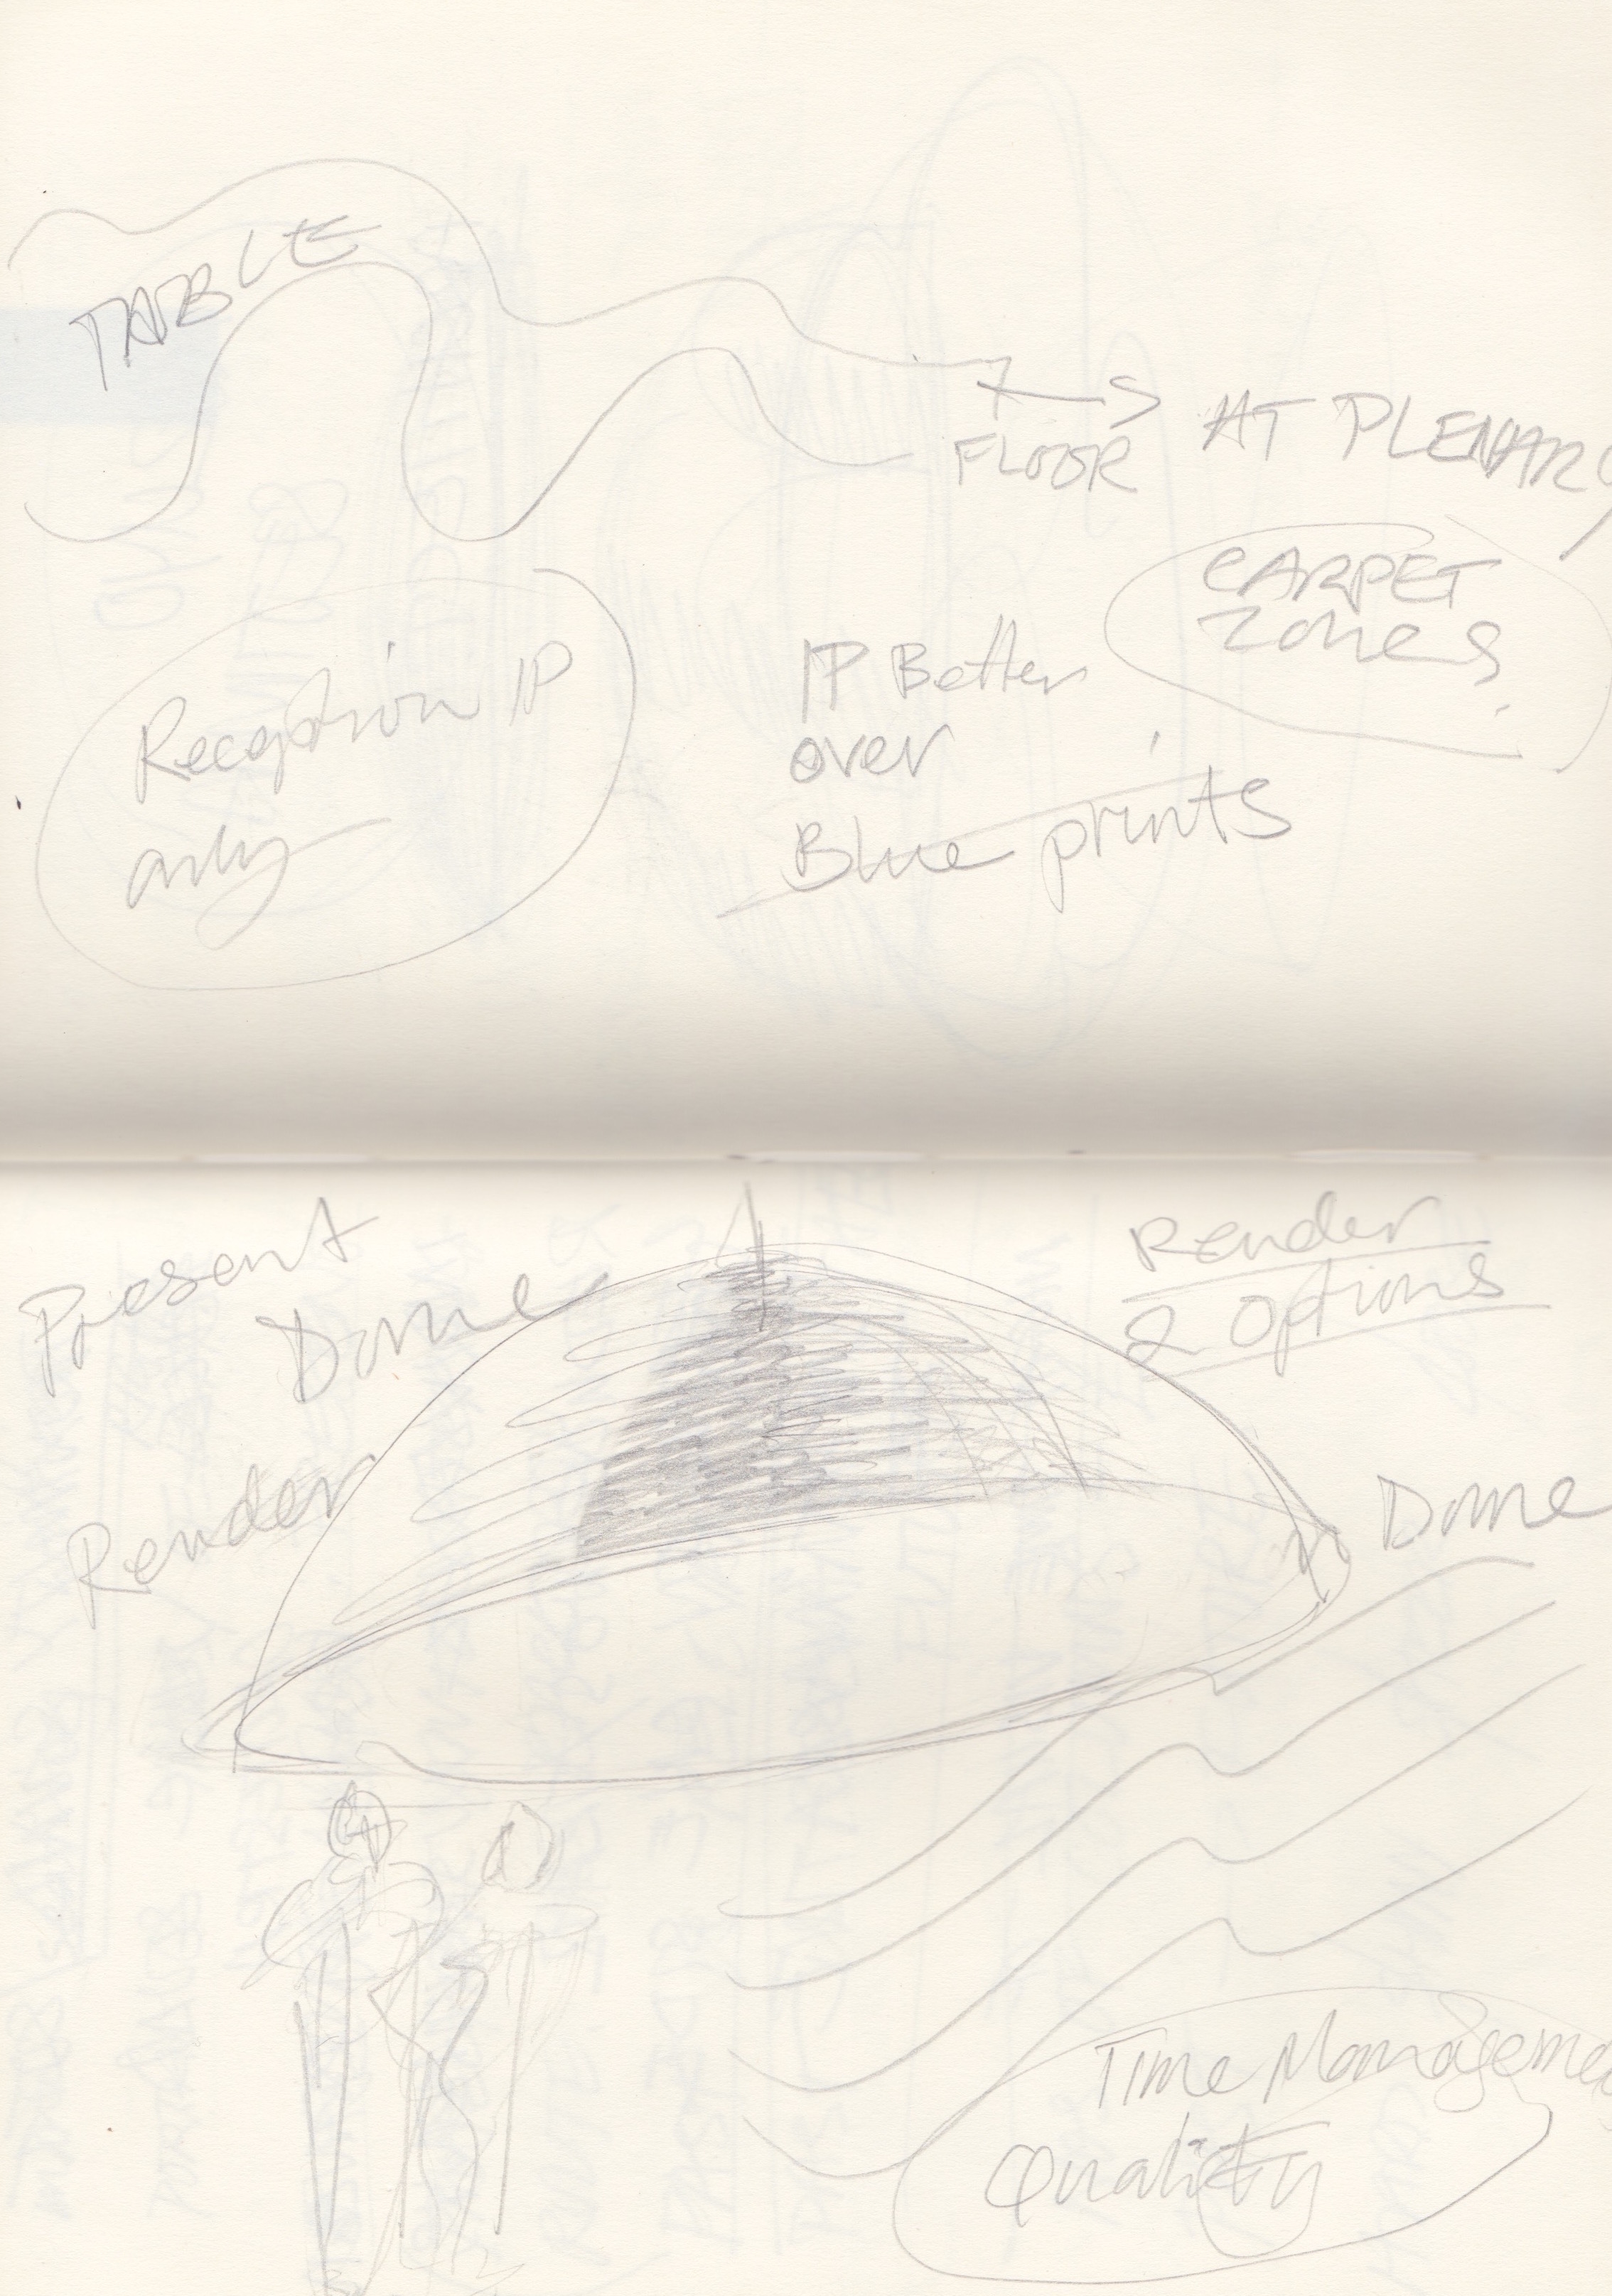 TABLE
FLOOR
AT PLENARY
CARPET
zones
Reception IP
only
IP Better
over
Blue prints
Present
Dome
Render
2 options
Render
Dome
Time Manageme
Quality